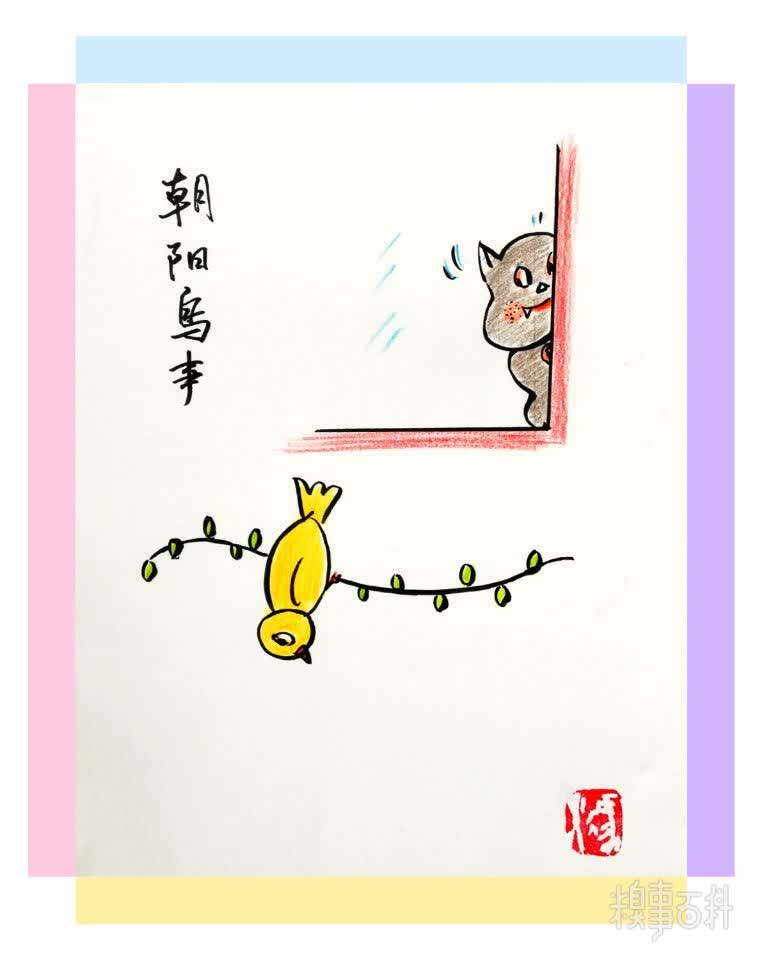 朝阳鸟事
糗事百科